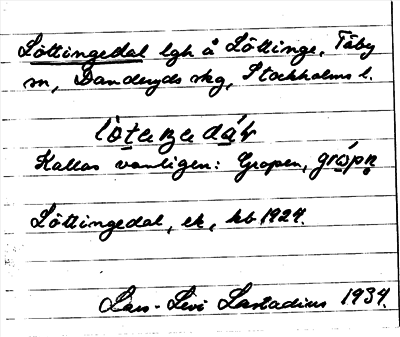 Löttingedal lgh å Löttinge, Täby
sn, Danderyds skg, Stockholms l.
lò̀taṉadá̱v
Kallas vanligen: Gropen, gró̱pn̥
Löttingedal, ek, kb 1927.
Lars-Levi Læstadius 1934.